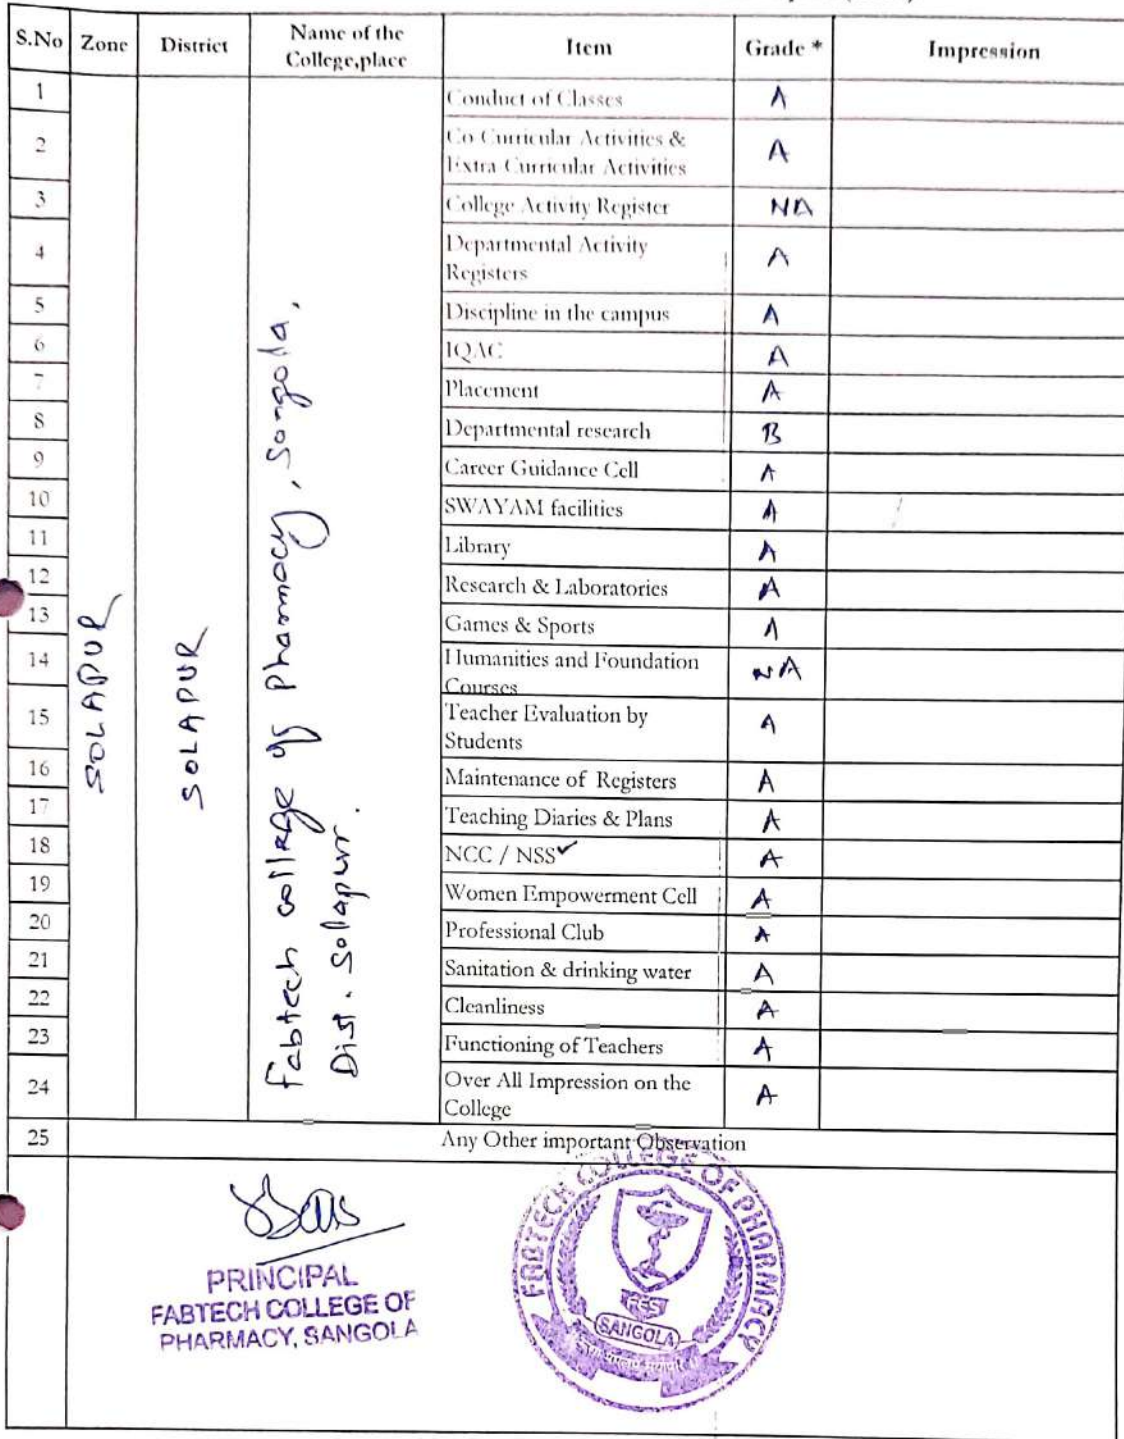 S.No Zone District Name of the College,place Item Grade * Impression
1 Conduct of Classes A
2 Co Curricular Activities & Extra Curricular Activities A
3 College Activity Register NA
4 Departmental Activity Registers A
5 Discipline in the campus A
6 IQAC A
7 Placement A
8 Departmental research B
9 Career Guidance Cell A
10 SWAYAM facilities A
11 Library A
12 Research & Laboratories A
13 Games & Sports A
14 Humanities and Foundation Courses NA
15 Teacher Evaluation by Students A
16 Maintenance of Registers A
17 Teaching Diaries & Plans A
18 NCC / NSS ✓ A
19 Women Empowerment Cell A
20 Professional Club A
21 Sanitation & drinking water A
22 Cleanliness A
23 Functioning of Teachers A
24 Over All Impression on the College A
SOLAPUR
SOLAPUR
Fabtech college of pharmacy, Sangola,
Dist. Solapur.
25 Any Other important Observation
PRINCIPAL
FABTECH COLLEGE OF
PHARMACY, SANGOLA
FABTECH COLLEGE OF PHARMACY
FES
SANGOLA